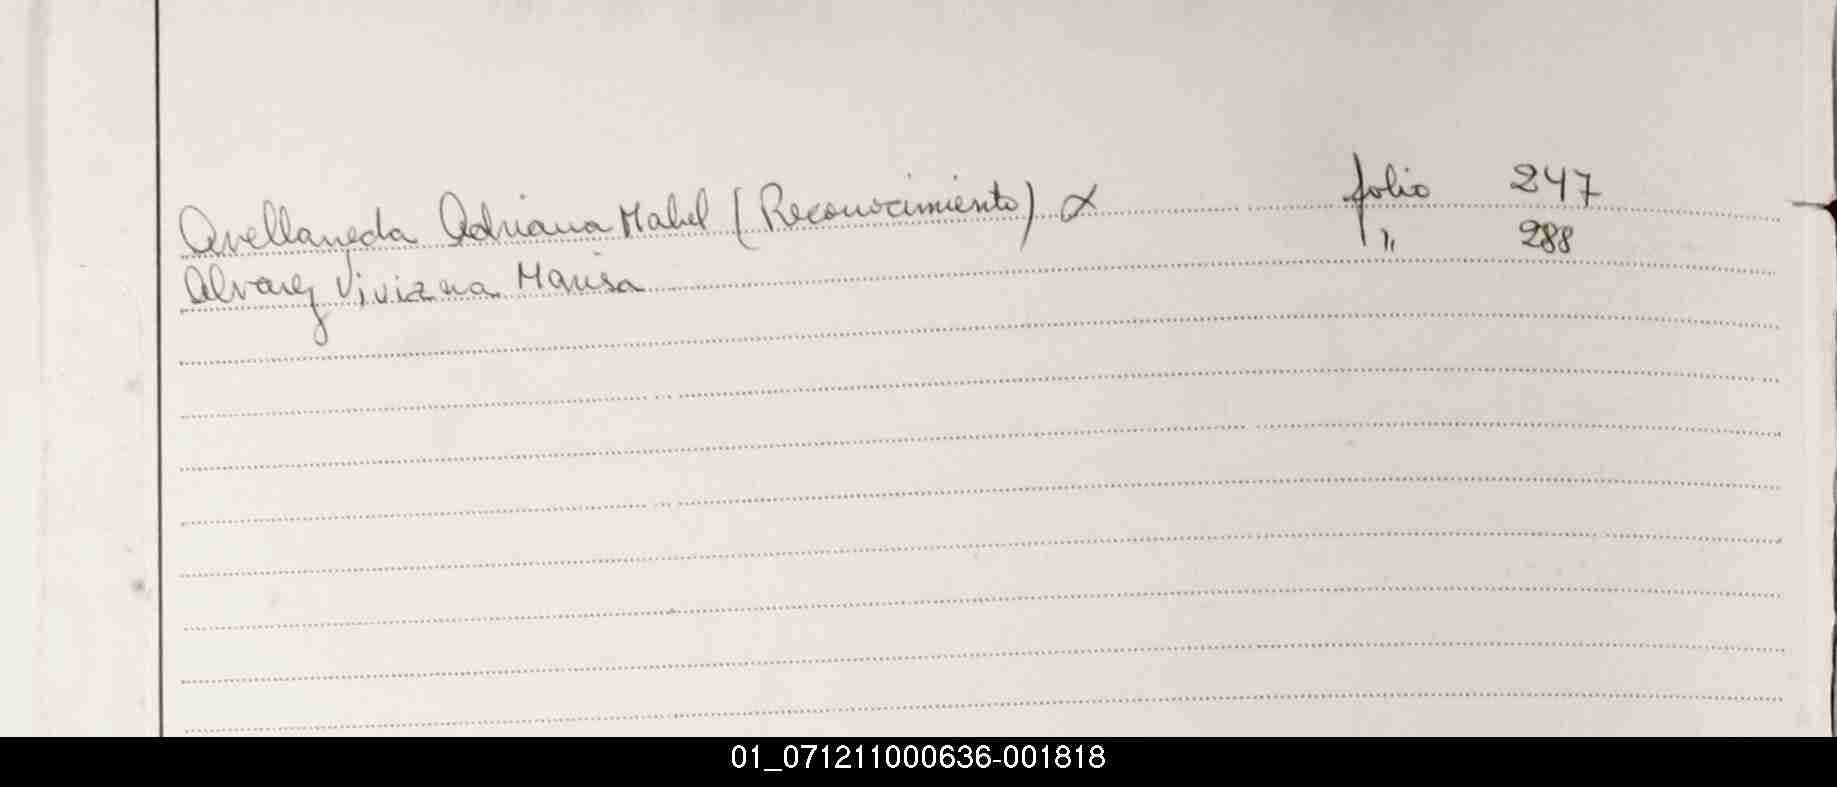 Avellaneda Adriana Mabel (Reconocimiento) α folio 247
Alvarez Viviana Marisa " 288
01_071211000636-001818